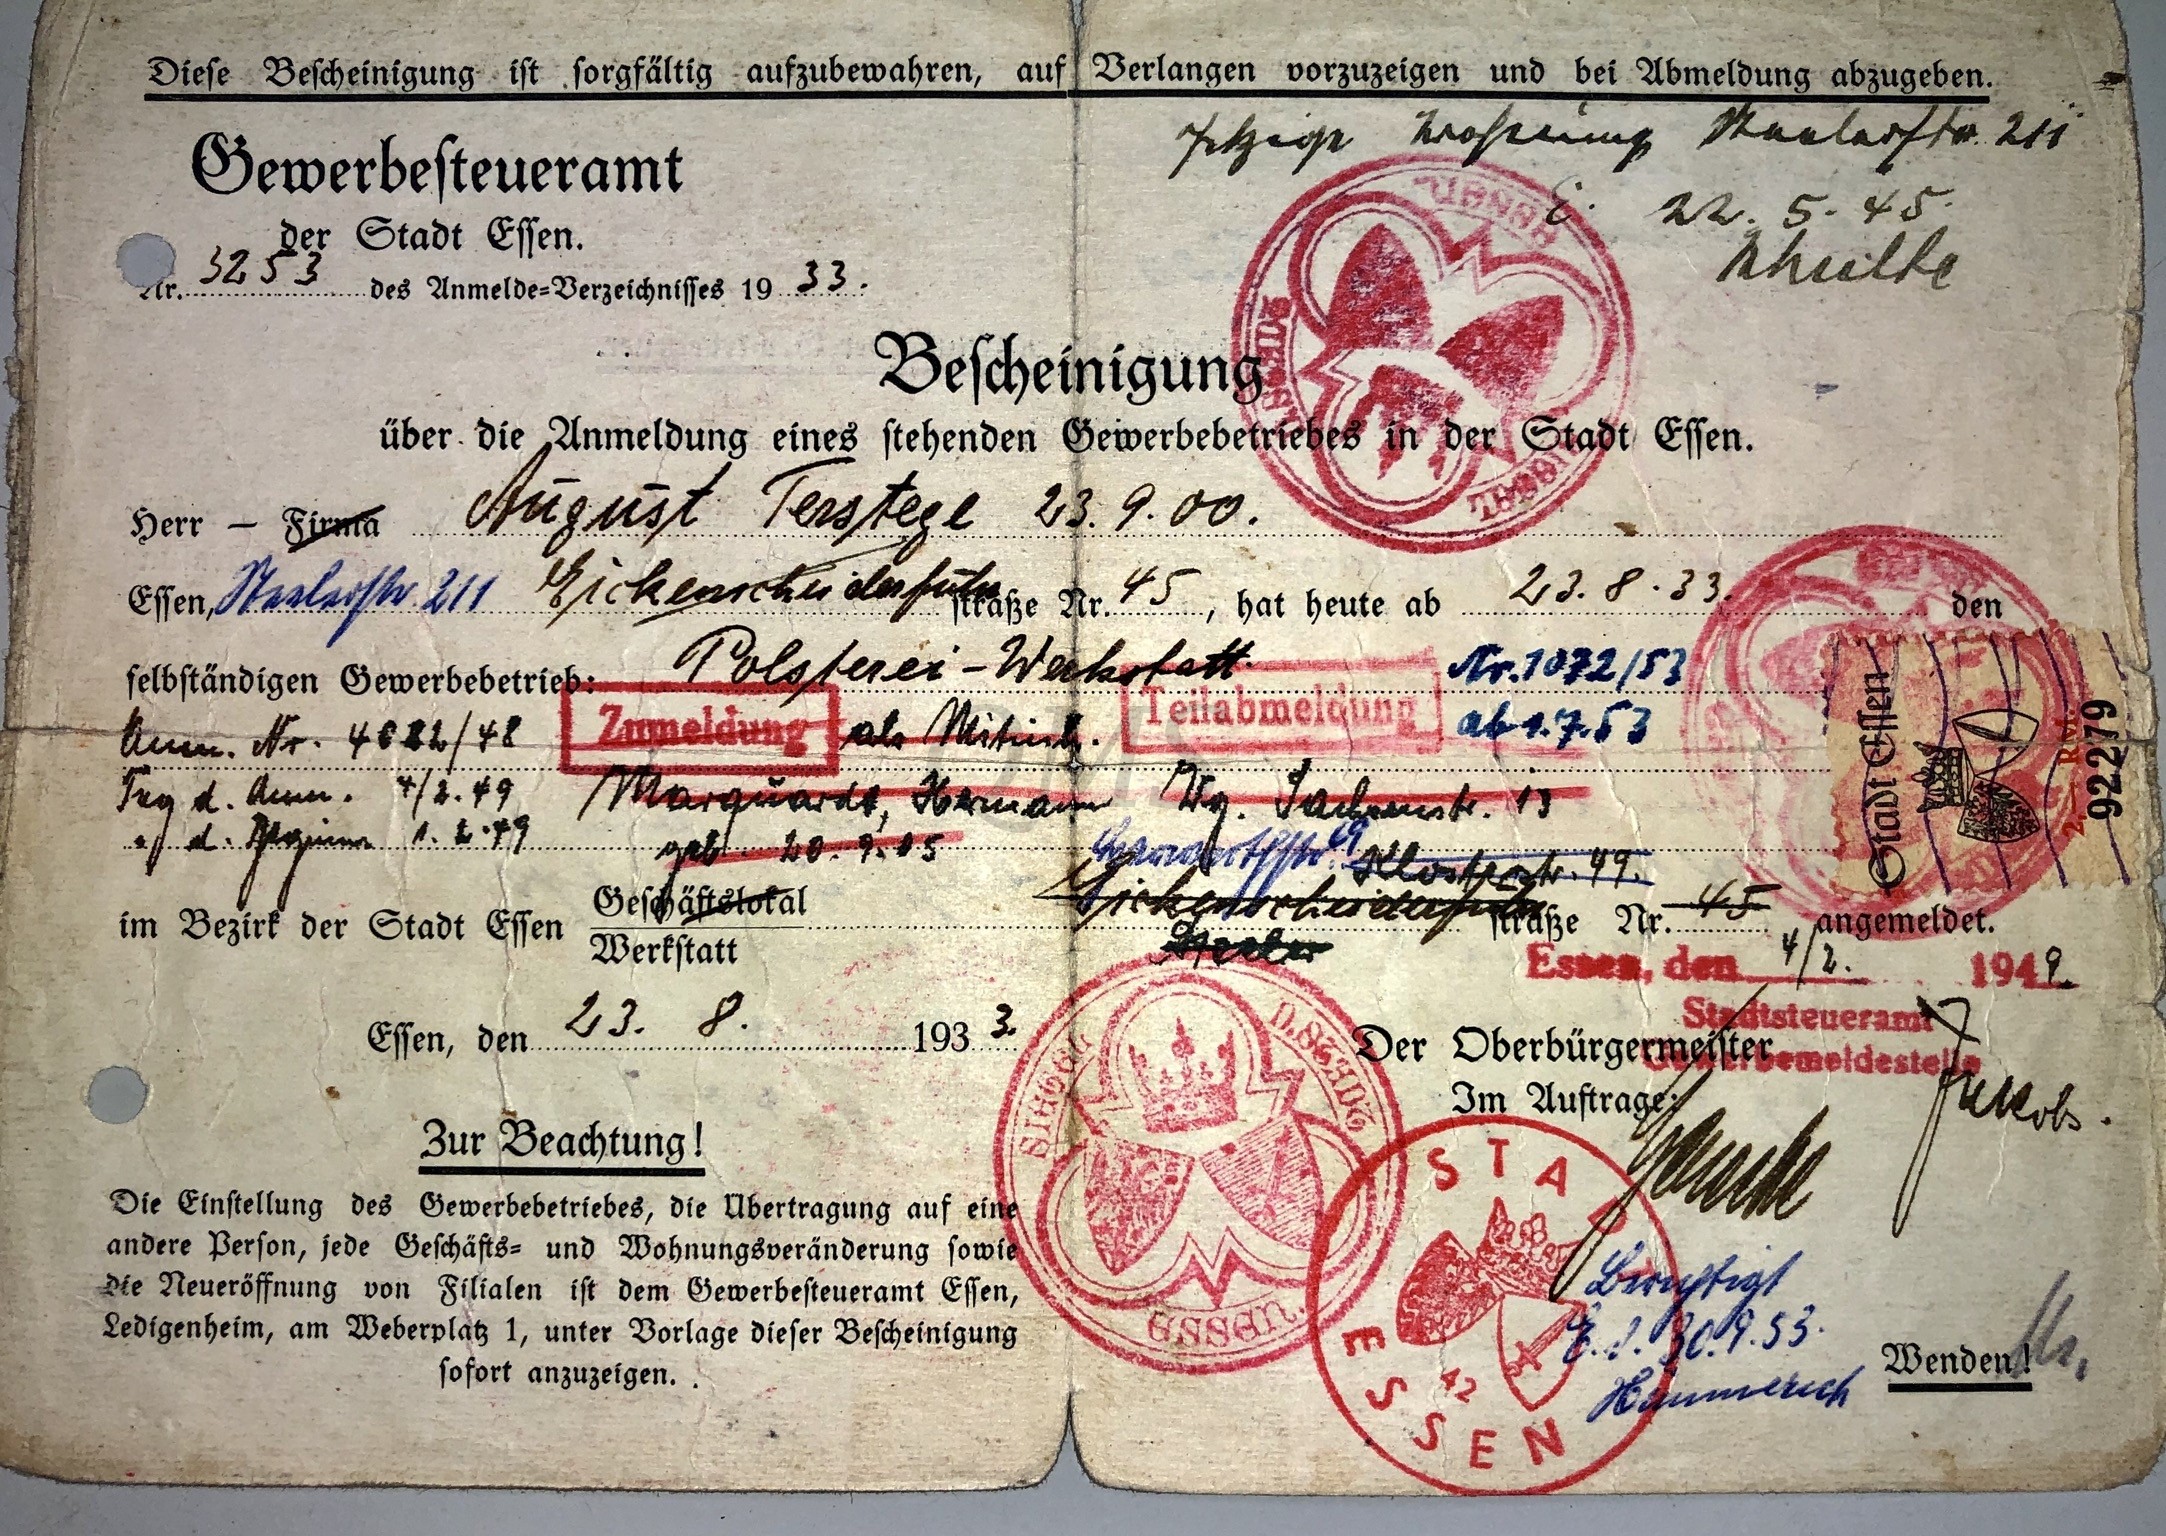 Diese Bescheinigung ist sorgfältig aufzubewahren, auf Verlangen vorzuzeigen und bei Abmeldung abzugeben.
Jetzige Wohnung Steelerstr. 211
E. 22.5.45.
Schulte
Gewerbesteueramt
der Stadt Essen.
Nr. 3253 des Anmelde=Verzeichnisses 19 33.
Bescheinigung
über die Anmeldung eines stehenden Gewerbebetriebes in der Stadt Essen.
Herr — Firma August Terstege 23.9.00.
Essen, Steelerstr. 211 Eickenscheiderfuhr straße Nr. 45, hat heute ab 23.8.33. den
selbständigen Gewerbebetrieb: Polsterei-Werkstatt Nr. 1072/53
Anm. Nr. 4082/48 Zumeldung als Mitinh. Teilabmeldung ab 1.7.53
Tag d. Anm. 4/2.49 Marquardt, Hermann Wg. Sachsenstr. 13
" d. Beginns 1.2.49 geb. 20.9.05 Klosterstr. 49.
im Bezirk der Stadt Essen Geschäftslokal Eickenscheiderfuhr straße Nr. 45 angemeldet.
Werkstatt
Essen, den 4/2. 1949.
Stadtsteueramt
Gewerbemeldestelle
Essen, den 23. 8. 1933.
Der Oberbürgermeister
Im Auftrage:
Jakobs.
Zur Beachtung!
Die Einstellung des Gewerbebetriebes, die Übertragung auf eine
andere Person, jede Geschäfts= und Wohnungsveränderung sowie
die Neueröffnung von Filialen ist dem Gewerbesteueramt Essen,
Ledigenheim, am Weberplatz 1, unter Vorlage dieser Bescheinigung
sofort anzuzeigen.
Berichtigt
E. d. 30.9.53.
Himmerich
Wenden!
SIEGEL D. STADT ESSEN.
STADT ESSEN 42
Stadt Essen
2.— RM
92279